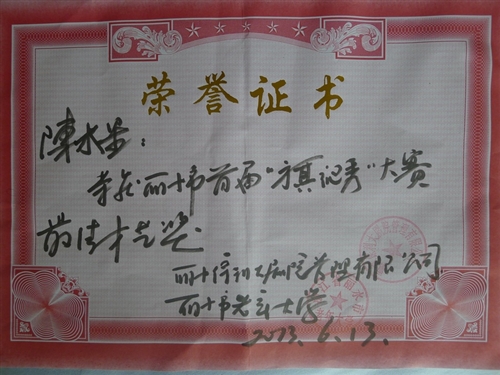 荣誉证书
陳水生：
荣获丽水市首届“旗袍秀”大赛
最佳才艺奖
丽水 剧院管理有限公司
丽水市老年大学
2013.6.13.